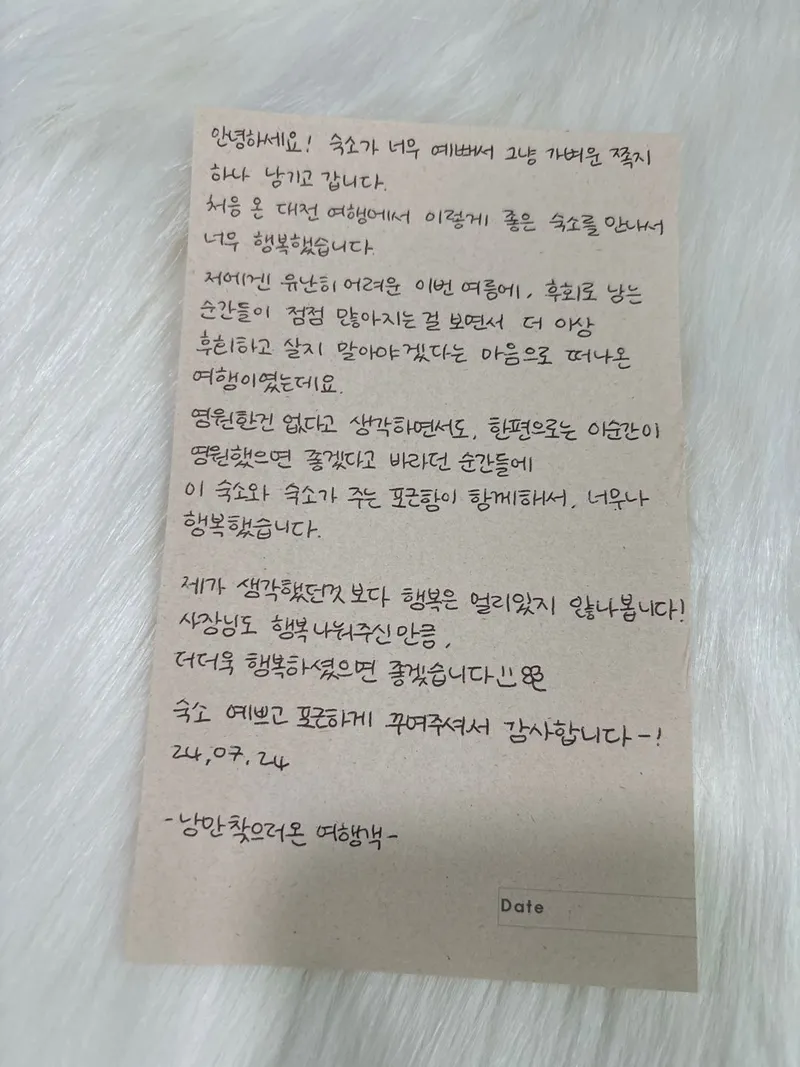 안녕하세요! 숙소가 너무 예뻐서 그냥 가벼운 쪽지
하나 남기고 갑니다.
처음 온 대전 여행에서 이렇게 좋은 숙소를 만나서
너무 행복했습니다.
저에겐 유난히 어려운 이번 여름에, 후회로 남는
순간들이 점점 많아지는 걸 보면서 더 이상
후회하고 살지 말아야겠다는 마음으로 떠나온
여행이였는데요.
영원한건 없다고 생각하면서도, 한편으로는 이순간이
영원했으면 좋겠다고 바라던 순간들에
이 숙소와 숙소가 주는 포근함이 함께해서, 너무나
행복했습니다.
제가 생각했던것 보다 행복은 멀리있지 않나봅니다!
사장님도 행복 나눠주신 만큼,
더더욱 행복하셨으면 좋겠습니다!!
숙소 예쁘고 포근하게 꾸며주셔서 감사합니다-!
24.07.24
-낭만 찾으러온 여행객-
Date